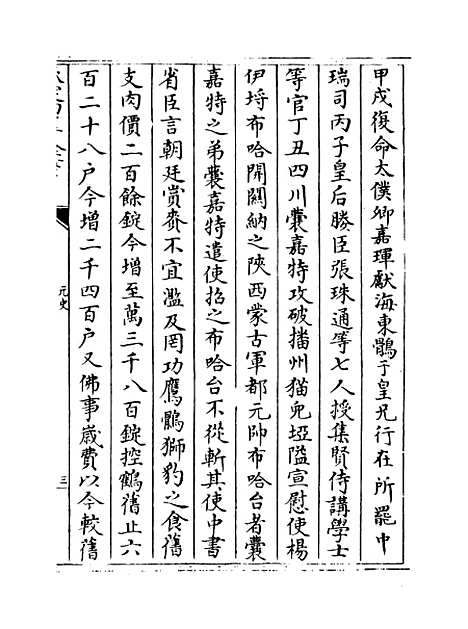 甲戌復命太僕卿嘉琿獻海東鶻于皇兄行在所罷中
瑞司丙子皇后媵臣張珠通等七人授集賢侍講學士
等官丁丑四川囊嘉特攻破播州猫兒埡隘宣慰使楊
伊埒布哈開關納之陝西蒙古軍都元帥布哈台者囊
嘉特之弟囊嘉特遣使招之布哈台不從斬其使中書
省臣言朝廷賞賚不宜濫及罔功鷹鶻獅豹之食舊
支肉價二百餘錠今增至萬三千八百錠控鶴舊止六
百二十八户今增二千四百户又佛事歲費以今較舊
元史
三